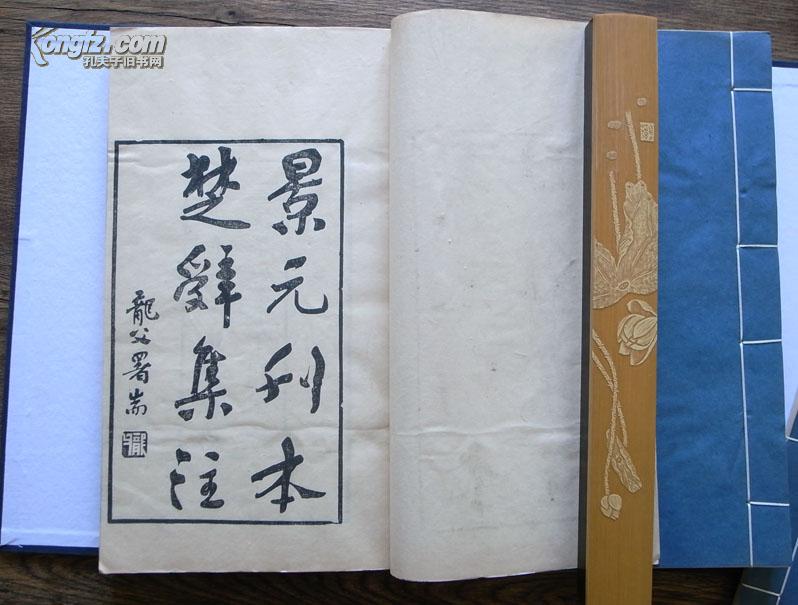 景元刊本
楚辭集注
龍父署耑
Kongfz.com
孔夫子旧书网